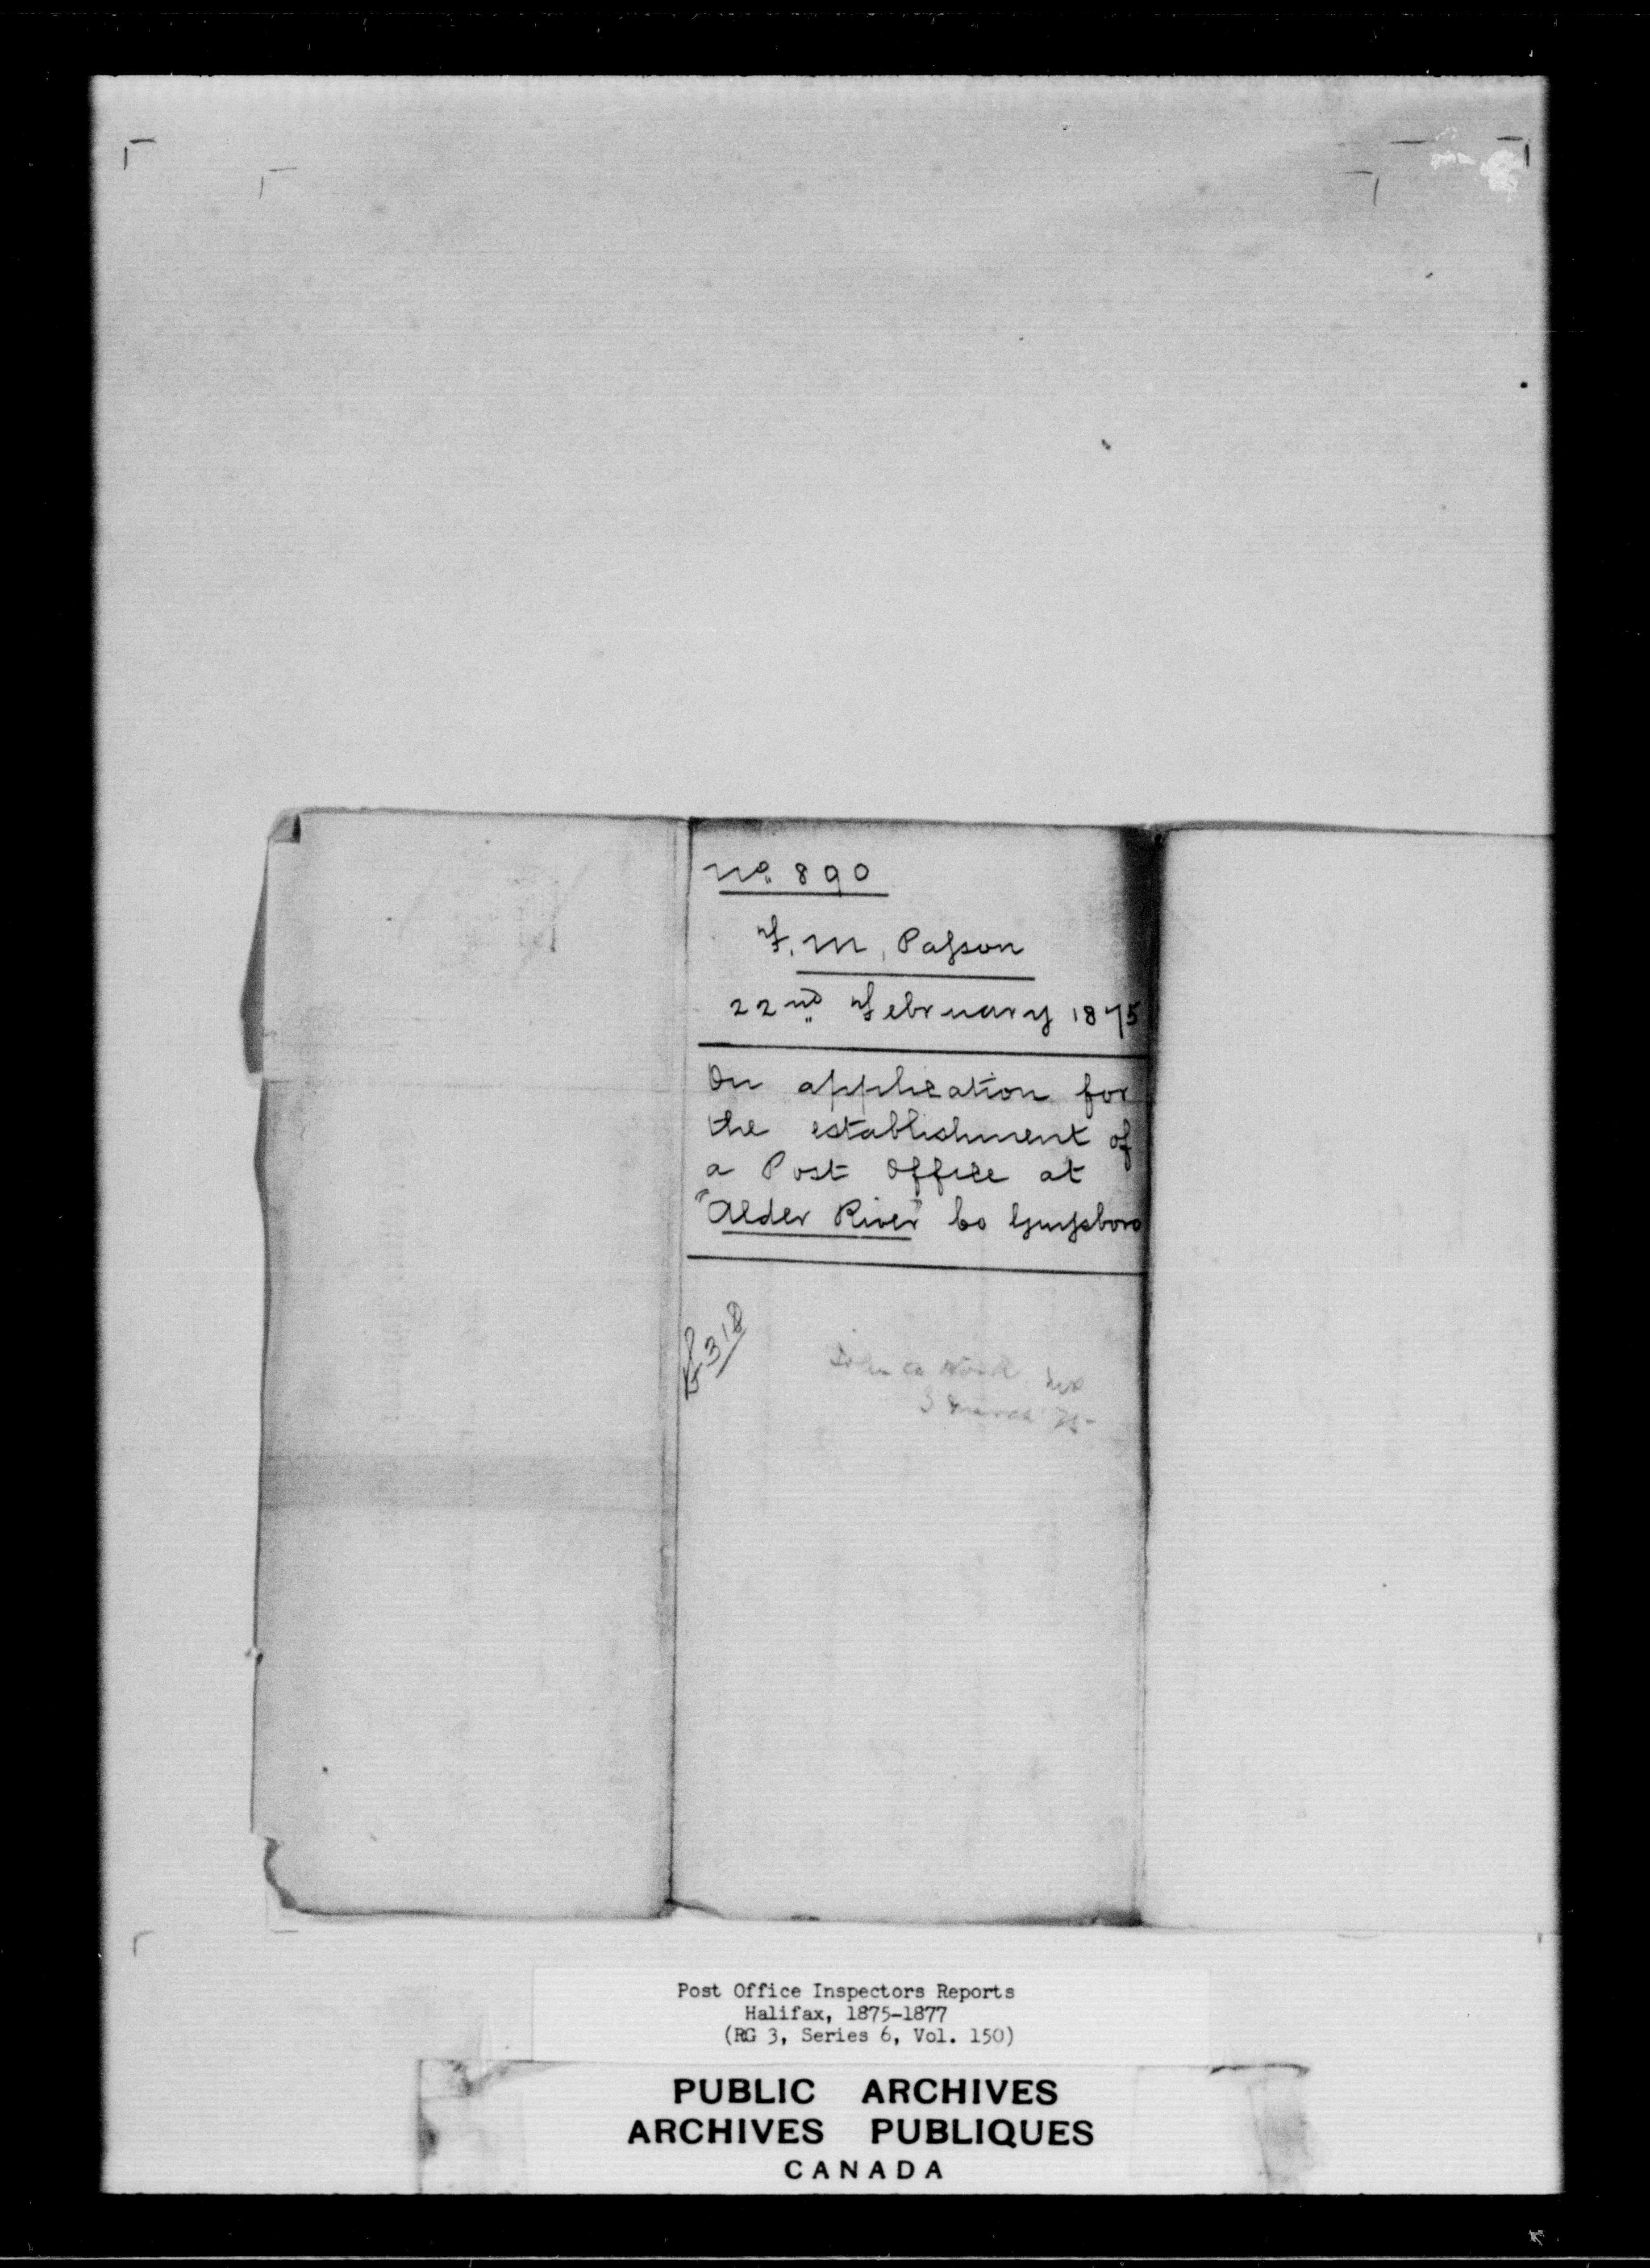 No. 890
F. M. Passon
22nd February 1875
On application for
the establishment of
a Post Office at
"Alder River" Co Guysboro
318
3 March 75-
Post Office Inspectors Reports
Halifax, 1875-1877
(RG 3, Series 6, Vol. 150)
PUBLIC ARCHIVES
ARCHIVES PUBLIQUES
CANADA